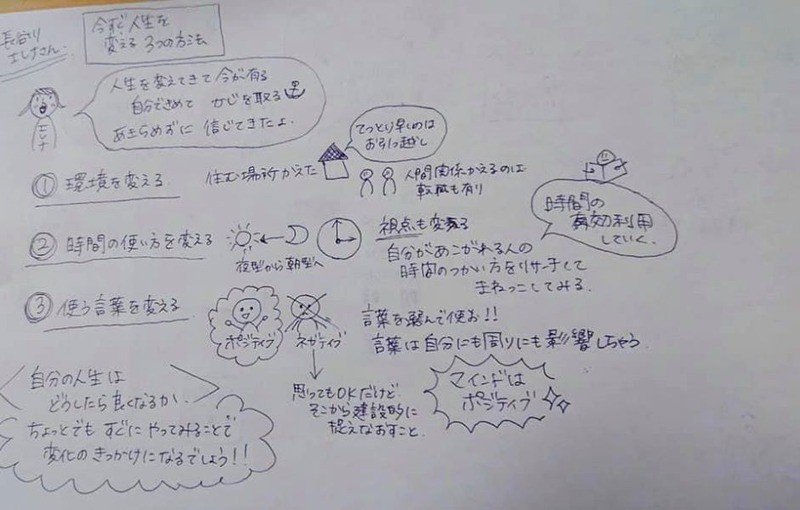 長谷川
エレナさん.
今すぐ人生を
変える 3つの方法
人生を変えてきて 今が有る
自分できめて かじを取る
あきらめずに 信じてきたよ.
エレナ
① 環境を変える.
住む場所がえた
てっとり早いのは
お引っ越し
人間関係かえるのは
転職も有り
② 時間の使い方を変える
夜型から朝型へ
視点も変える
自分があこがれる人の
時間のつかい方をリサーチして
まねっこしてみる.
時間の
有効利用
していく.
③ 使う言葉を変える
ポジティブ
ネガティブ
言葉を選んで使お!!
言葉は自分にも周りにも影響しちゃう
思ってもOKだけど
そこから建設的に
捉えなおすこと.
マインドは
ポジティブ
自分の人生は
どうしたら良くなるか.
ちょっとでも すぐにやってみることで
変化のきっかけになるでしょう!!